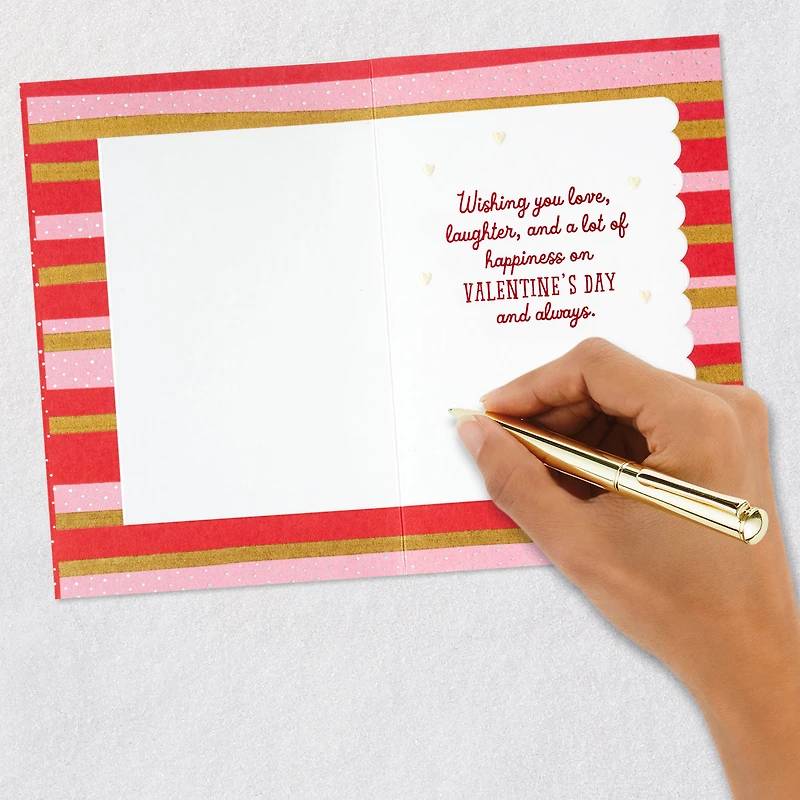 Wishing you love,
laughter, and a lot of
happiness on
VALENTINE'S DAY
and always.